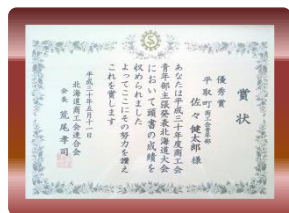 賞状
優秀賞
平取町商工会青年部
佐々健太郎 様
あなたは平成三十年度商工会
青年部主張発表北海道大会
において頭書の成績を
収められました
よってここにその努力を讃え
これを賞します
平成三十年五月十一日
北海道商工会連合会
会長 荒尾孝司